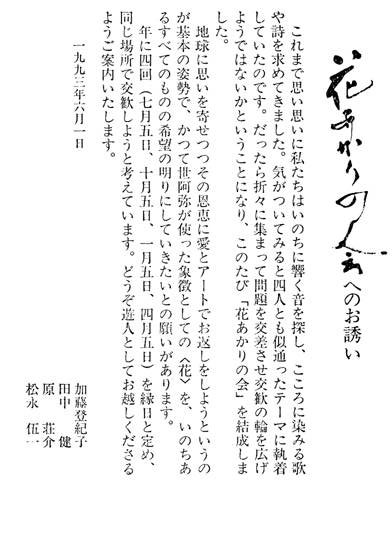 花あかりの会へのお誘い
これまで思い思いに私たちはいのちに響く音を探し、こころに染みる歌
や詩を求めてきました。気がついてみると四人とも似通ったテーマに執着
していたのです。だったら折々に集まって問題を交差させ交歓の輪を広げ
ようではないかということになり、このたび「花あかりの会」を結成しま
した。
地球に思いを寄せつつその恩恵に愛とアートでお返しをしようというの
が基本の姿勢で、かつて世阿弥が使った象徴としての〈花〉を、いのちあ
るすべてのものの希望の明りにしていきたいとの願いがあります。
年に四回（七月五日、十月五日、一月五日、四月五日）を縁日と定め、
同じ場所で交歓しようと考えています。どうぞ遊人としてお越しくださる
ようご案内いたします。
一九九三年六月一日
加藤登紀子
田中 健
原 荘介
松永 伍一